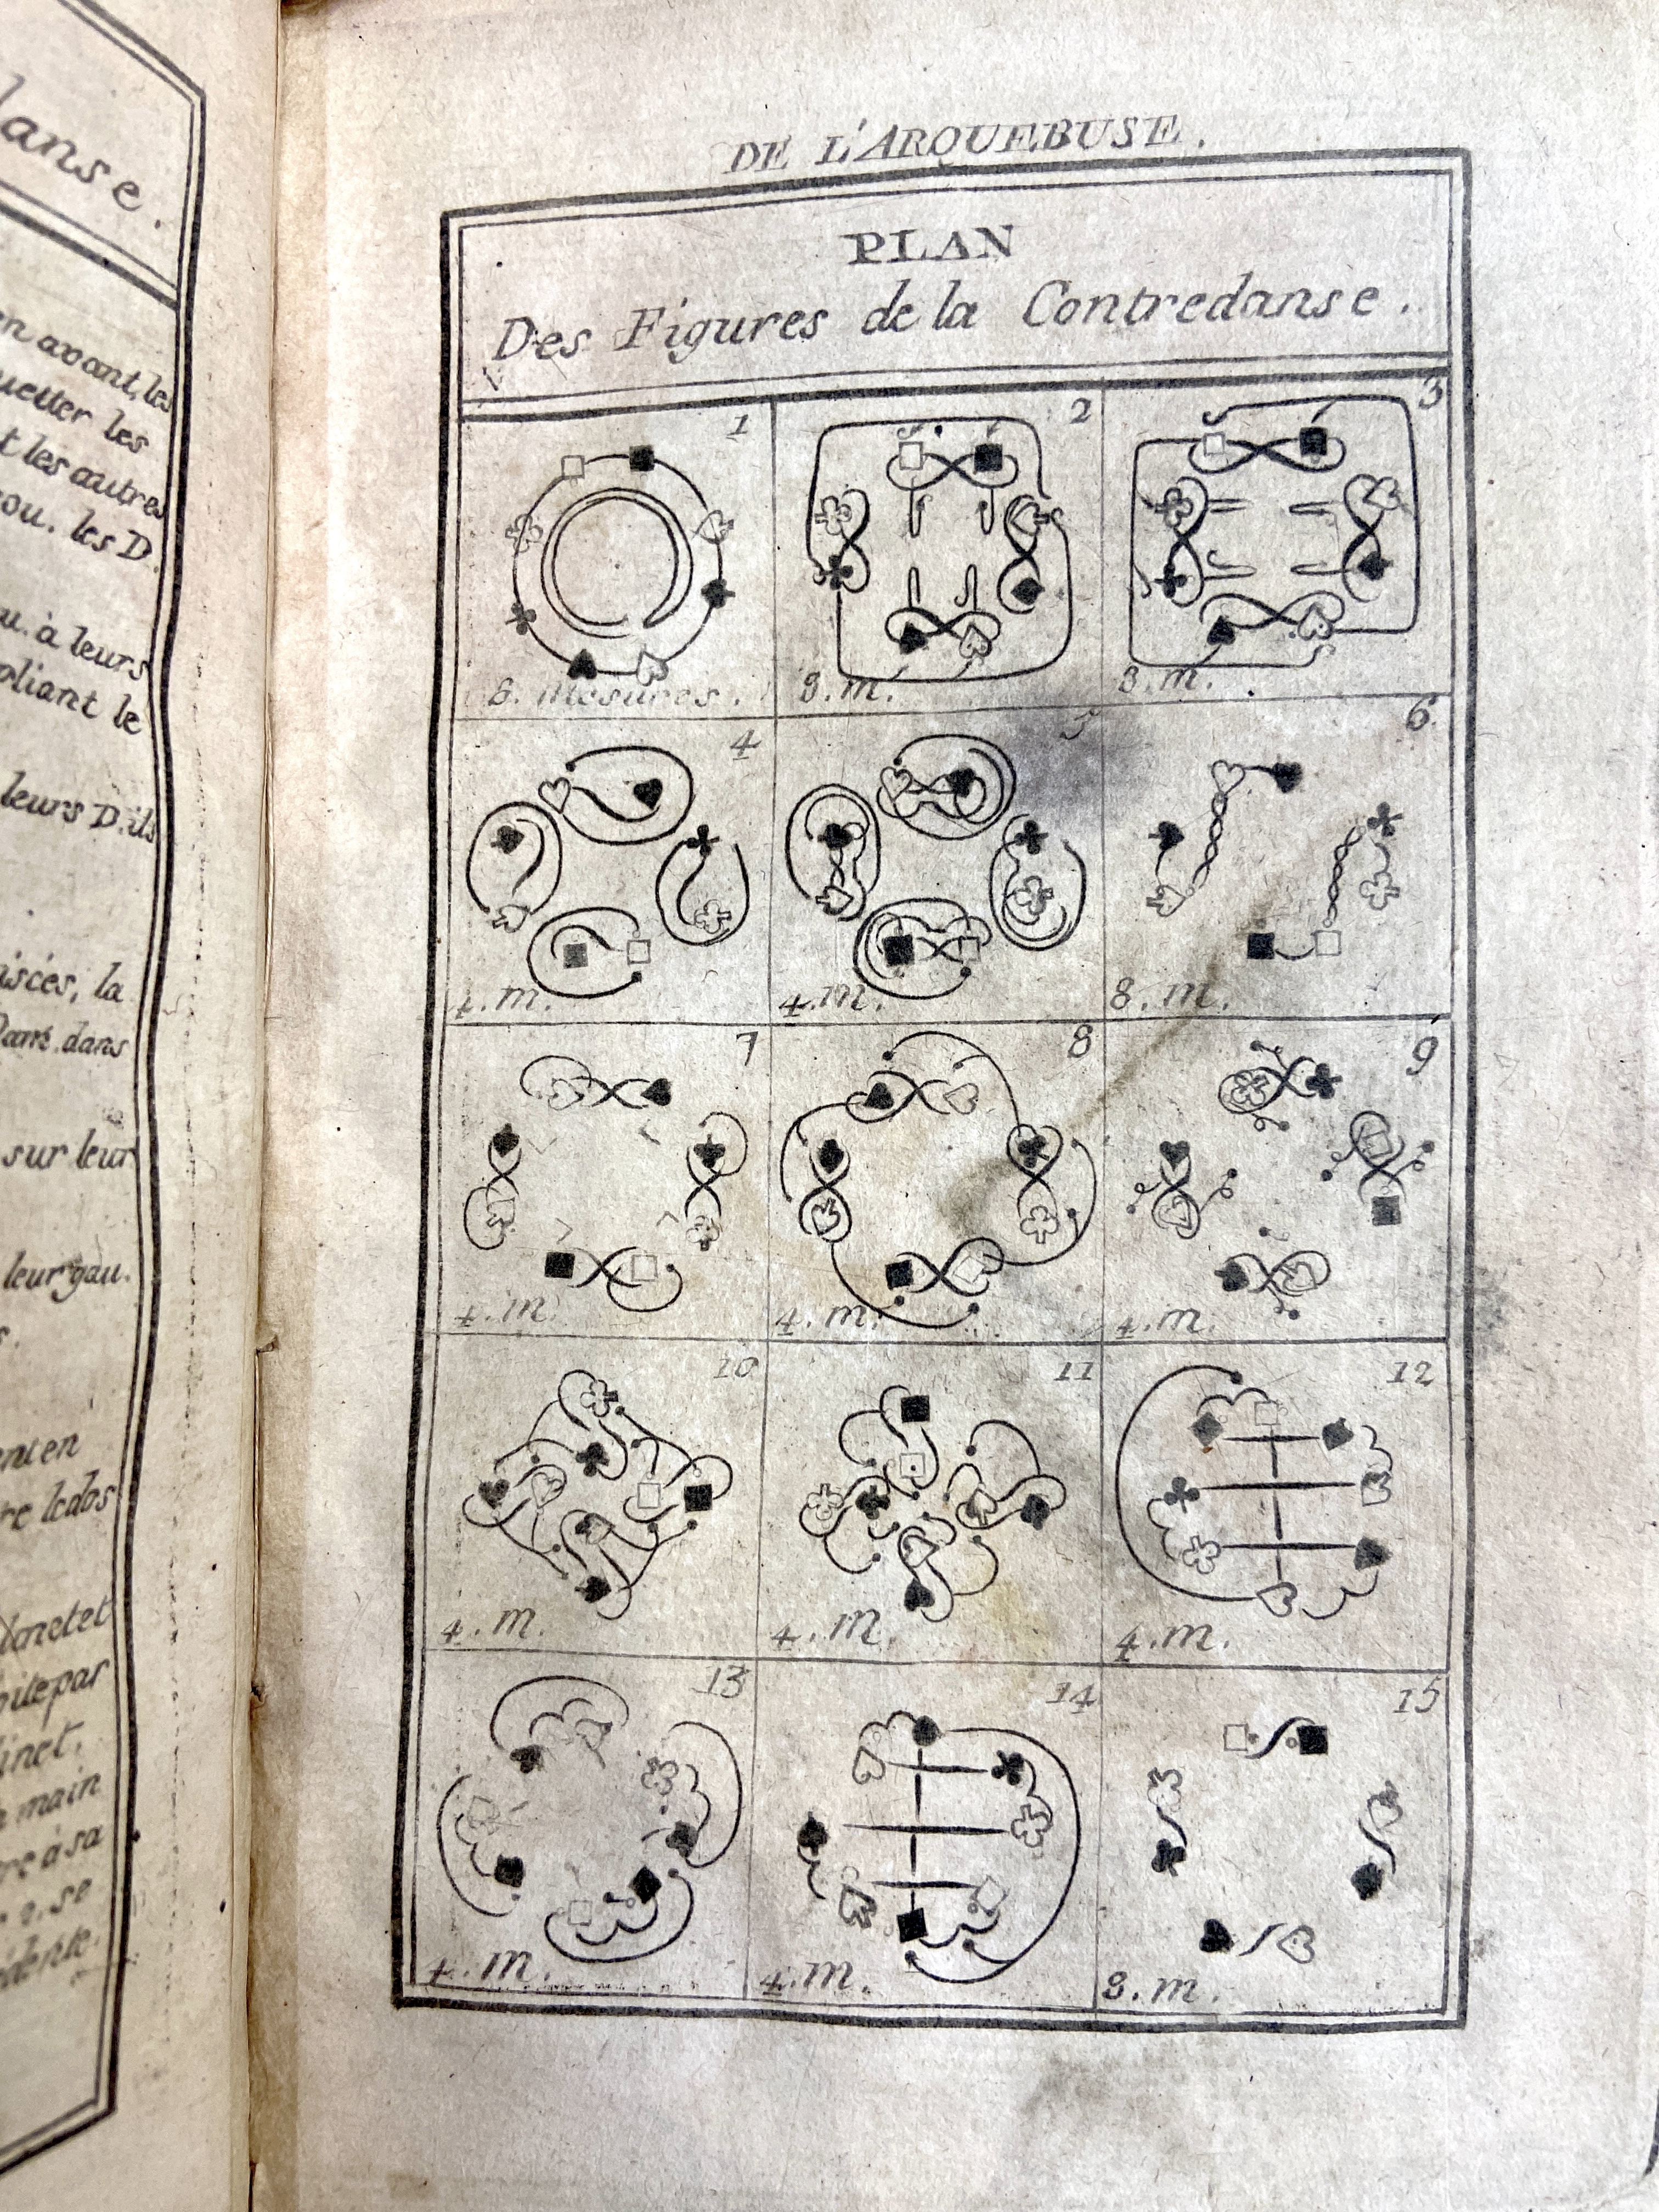 lanse.
en avant, les
les
t les autres
ou. les D.
u. à leurs
pliant le
leurs D. ils
la
dans
sur leur
leur gau.
en en
re le dos
par
main
re à sa
DE L'ARQUEBUSE.
PLAN
Des Figures de la Contredanse.
1
2
3
8. Mesures.
8. m.
8. m.
4
5
6
4. m.
4. m.
8. m.
7
8
9
4. m.
4. m.
4. m.
10
11
12
4. m.
4. m.
4. m.
13
14
15
4. m.
4. m.
8. m.